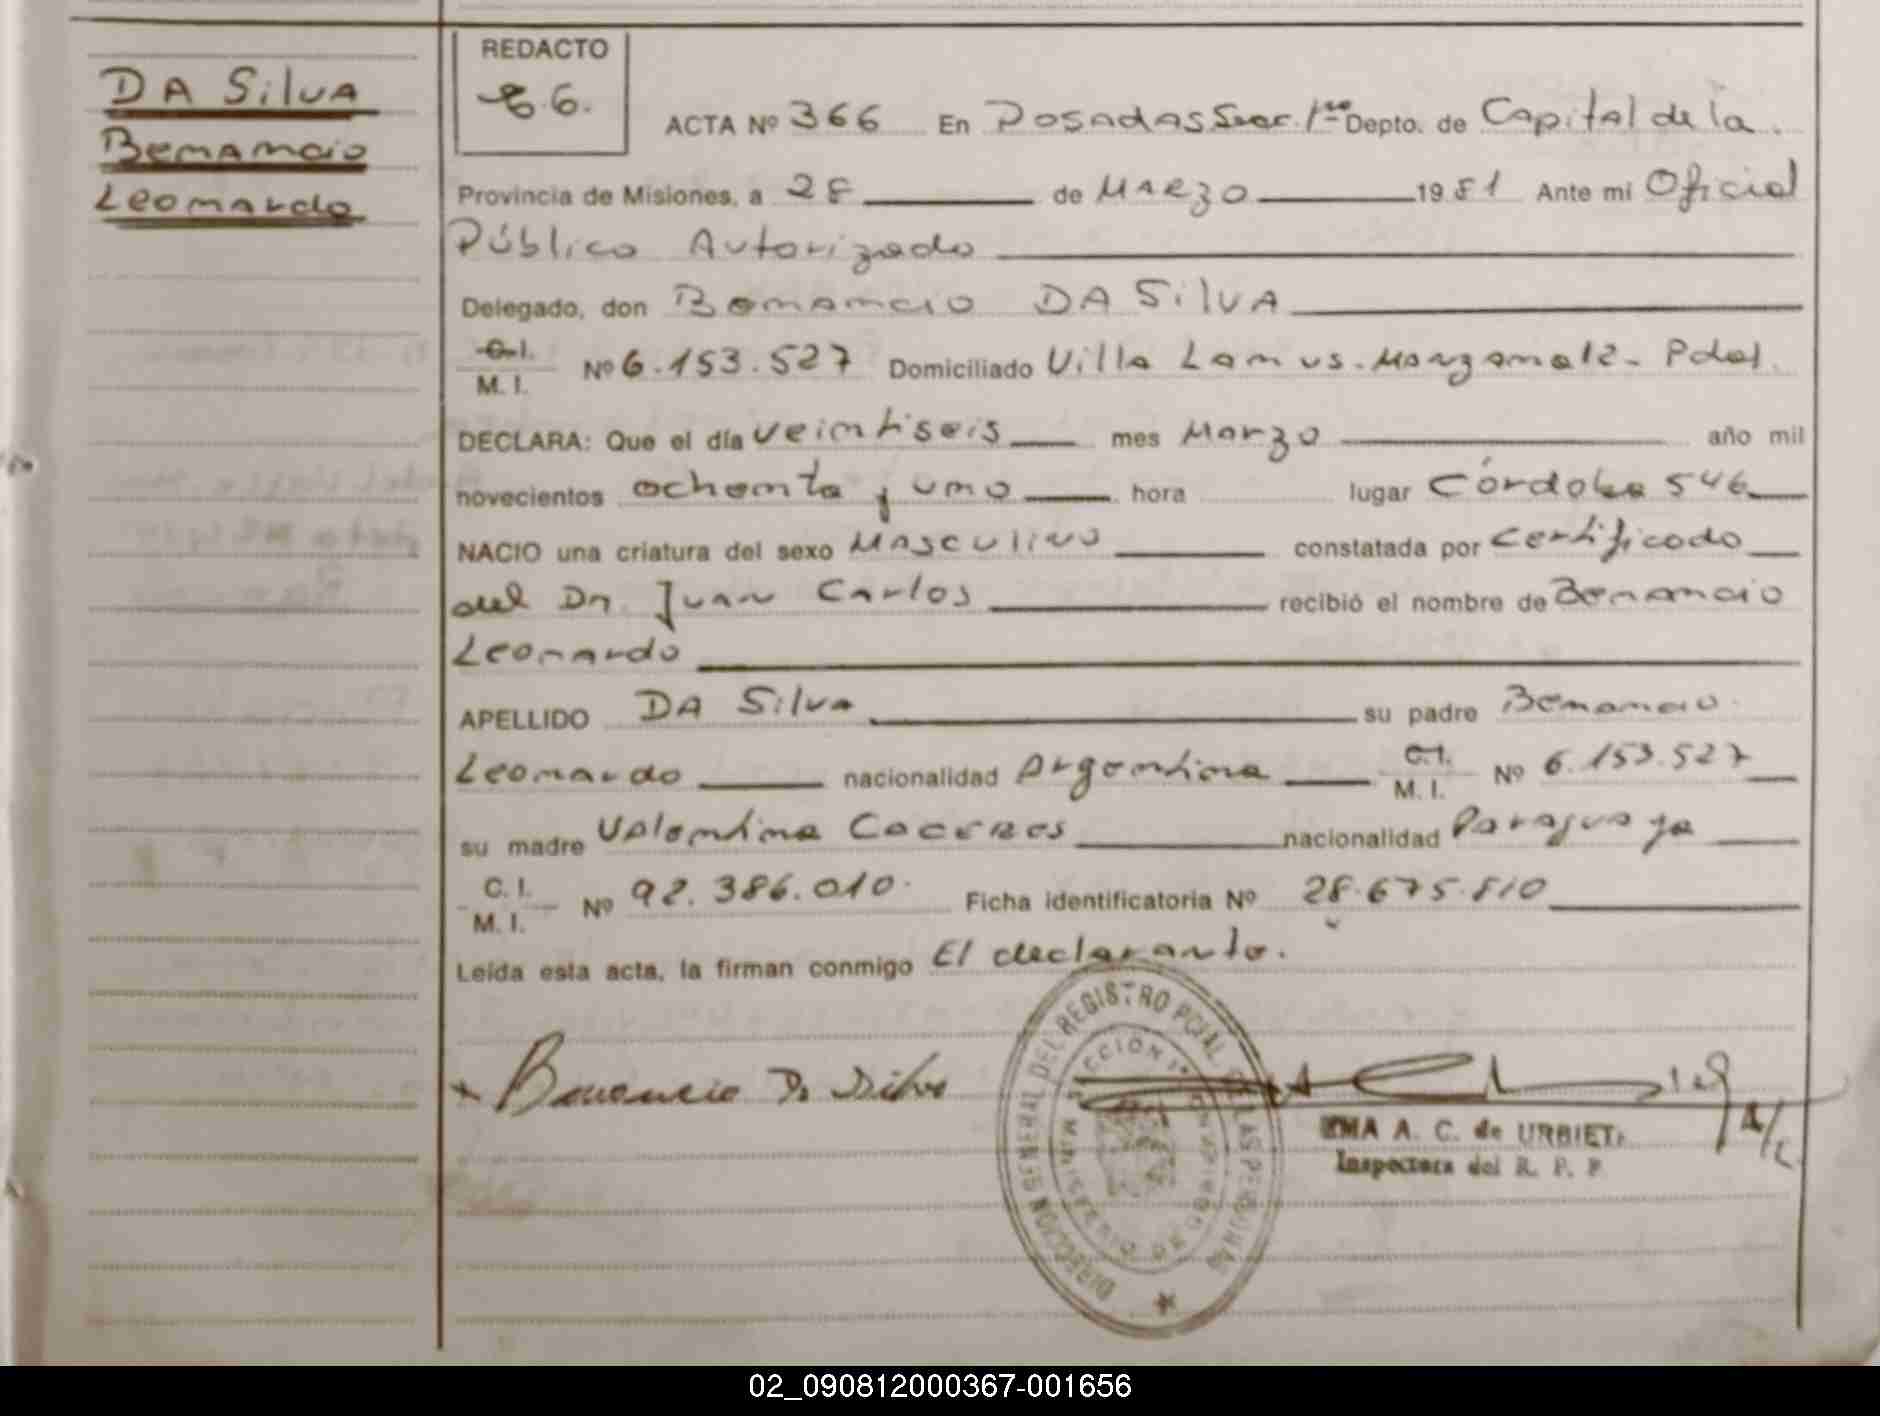 DA Silva
Benancio
Leonardo
REDACTO
G.G.
ACTA Nº 366 En Posadas Secc. 1ra Depto. de Capital de la
Provincia de Misiones, a 28 de Marzo 1981 Ante mi Oficial
Público Autorizado
Delegado, don Benancio DA Silva
C.I. M. I. Nº 6.153.527 Domiciliado Villa Lanus. Manzana 12- Pdas.
DECLARA: Que el día veintiseis mes Marzo año mil
novecientos ochenta y uno hora lugar Córdoba 546
NACIO una criatura del sexo Masculino constatada por Certificado
del Dr. Juan Carlos recibió el nombre de Benancio
Leonardo
APELLIDO DA Silva su padre Benancio
Leonardo nacionalidad Argentina C.I. M. I. Nº 6.153.527
su madre Valentina Caceres nacionalidad Paraguaya
C. I. M. I. Nº 92.386.010. Ficha identificatoria Nº 28.675.810
Leída esta acta, la firman conmigo El declarante.
Benancio Da Silva
DIRECCION GENERAL DEL REGISTRO PCIAL. DE LAS PERSONAS
SECCIÓN 1ª
A. C. de URBIETA
Inspectora del R. P. P.
02_090812000367-001656